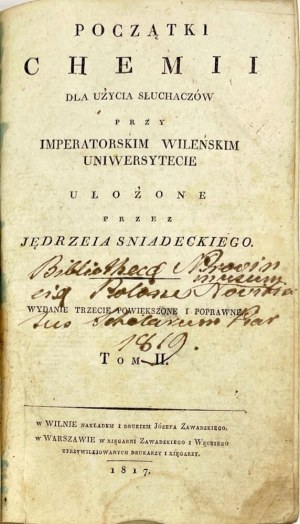 POCZĄTKI
CHEMII
DLA UŻYCIA SŁUCHACZÓW
PRZY
IMPERATORSKIM WILEŃSKIM
UNIWERSYTECIE
UŁOŻONE
PRZEZ
JĘDRZEIA SNIADECKIEGO.
Bibliotheca
Polona
WYDANIE TRZECIE POWIĘKSZONE I POPRAWNE
Scholarum Piar
1819.
TOM II.
w WILNIE NAKŁADEM I DRUKIEM JÓZEFA ZAWADZKIEGO.
w WARSZAWIE w XIĘGARNI ZAWADZKIEGO I WĘCKIEGO
UPRZYWILEIOWANYCH DRUKARZY I XIĘGARZY.
1817.